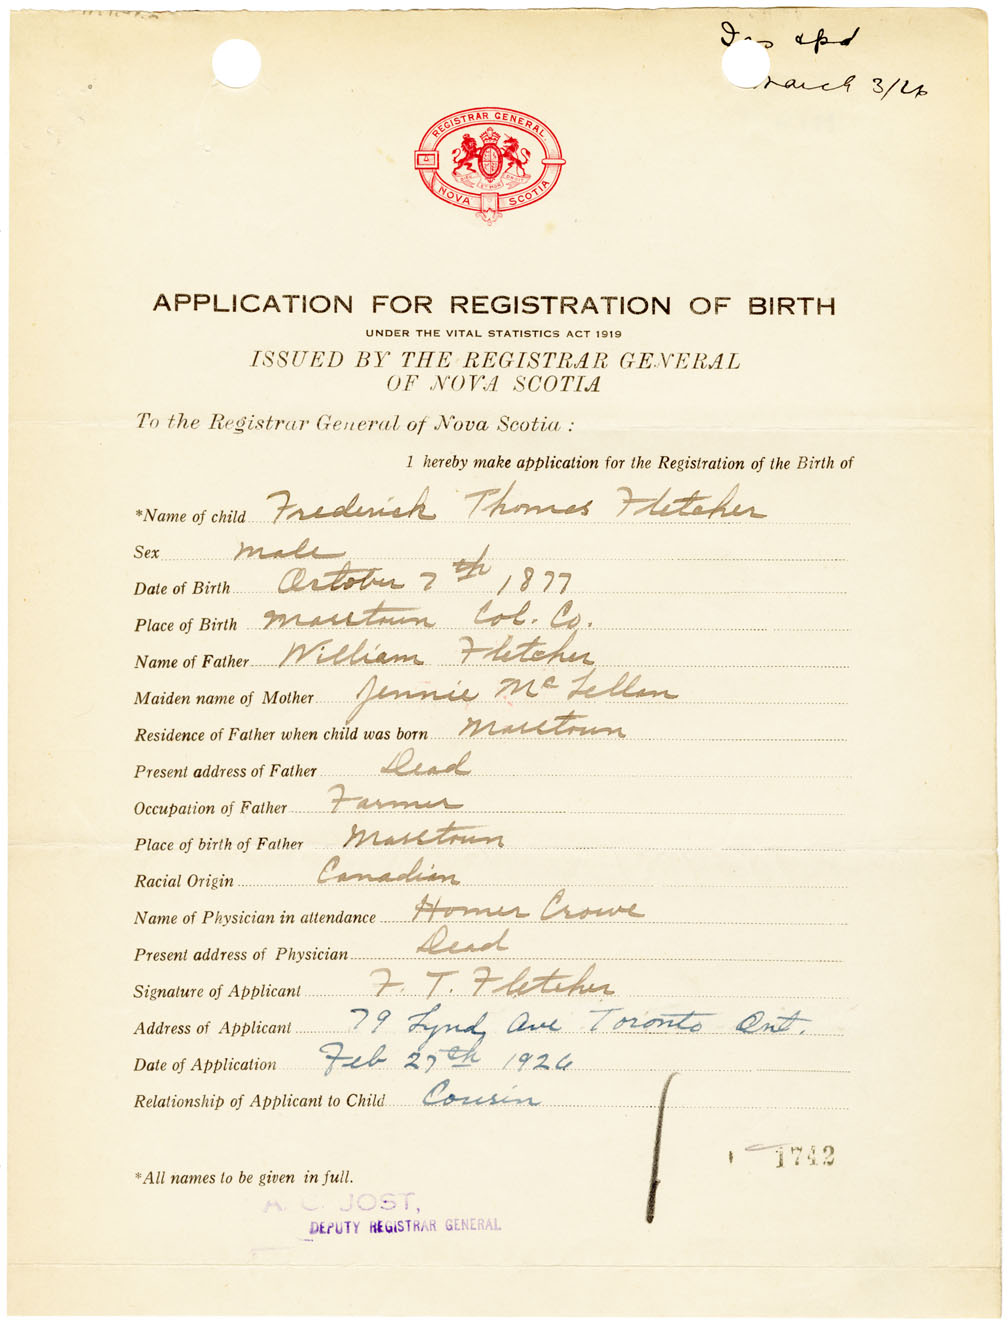 March 3/26
REGISTRAR GENERAL
NOVA SCOTIA
APPLICATION FOR REGISTRATION OF BIRTH
UNDER THE VITAL STATISTICS ACT 1919
ISSUED BY THE REGISTRAR GENERAL
OF NOVA SCOTIA
To the Registrar General of Nova Scotia :
I hereby make application for the Registration of the Birth of
*Name of child Frederick Thomas Fletcher
Sex male
Date of Birth October 7th 1877
Place of Birth Masstown Col. Co.
Name of Father William Fletcher
Maiden name of Mother Jennie McLellan
Residence of Father when child was born Masstown
Present address of Father Dead
Occupation of Father Farmer
Place of birth of Father Masstown
Racial Origin Canadian
Name of Physician in attendance Homer Crowe
Present address of Physician Dead
Signature of Applicant F. T. Fletcher
Address of Applicant 79 Lynd Ave Toronto Ont.
Date of Application Feb 27th 1926
Relationship of Applicant to Child Cousin
1742
*All names to be given in full.
A. C. JOST,
DEPUTY REGISTRAR GENERAL